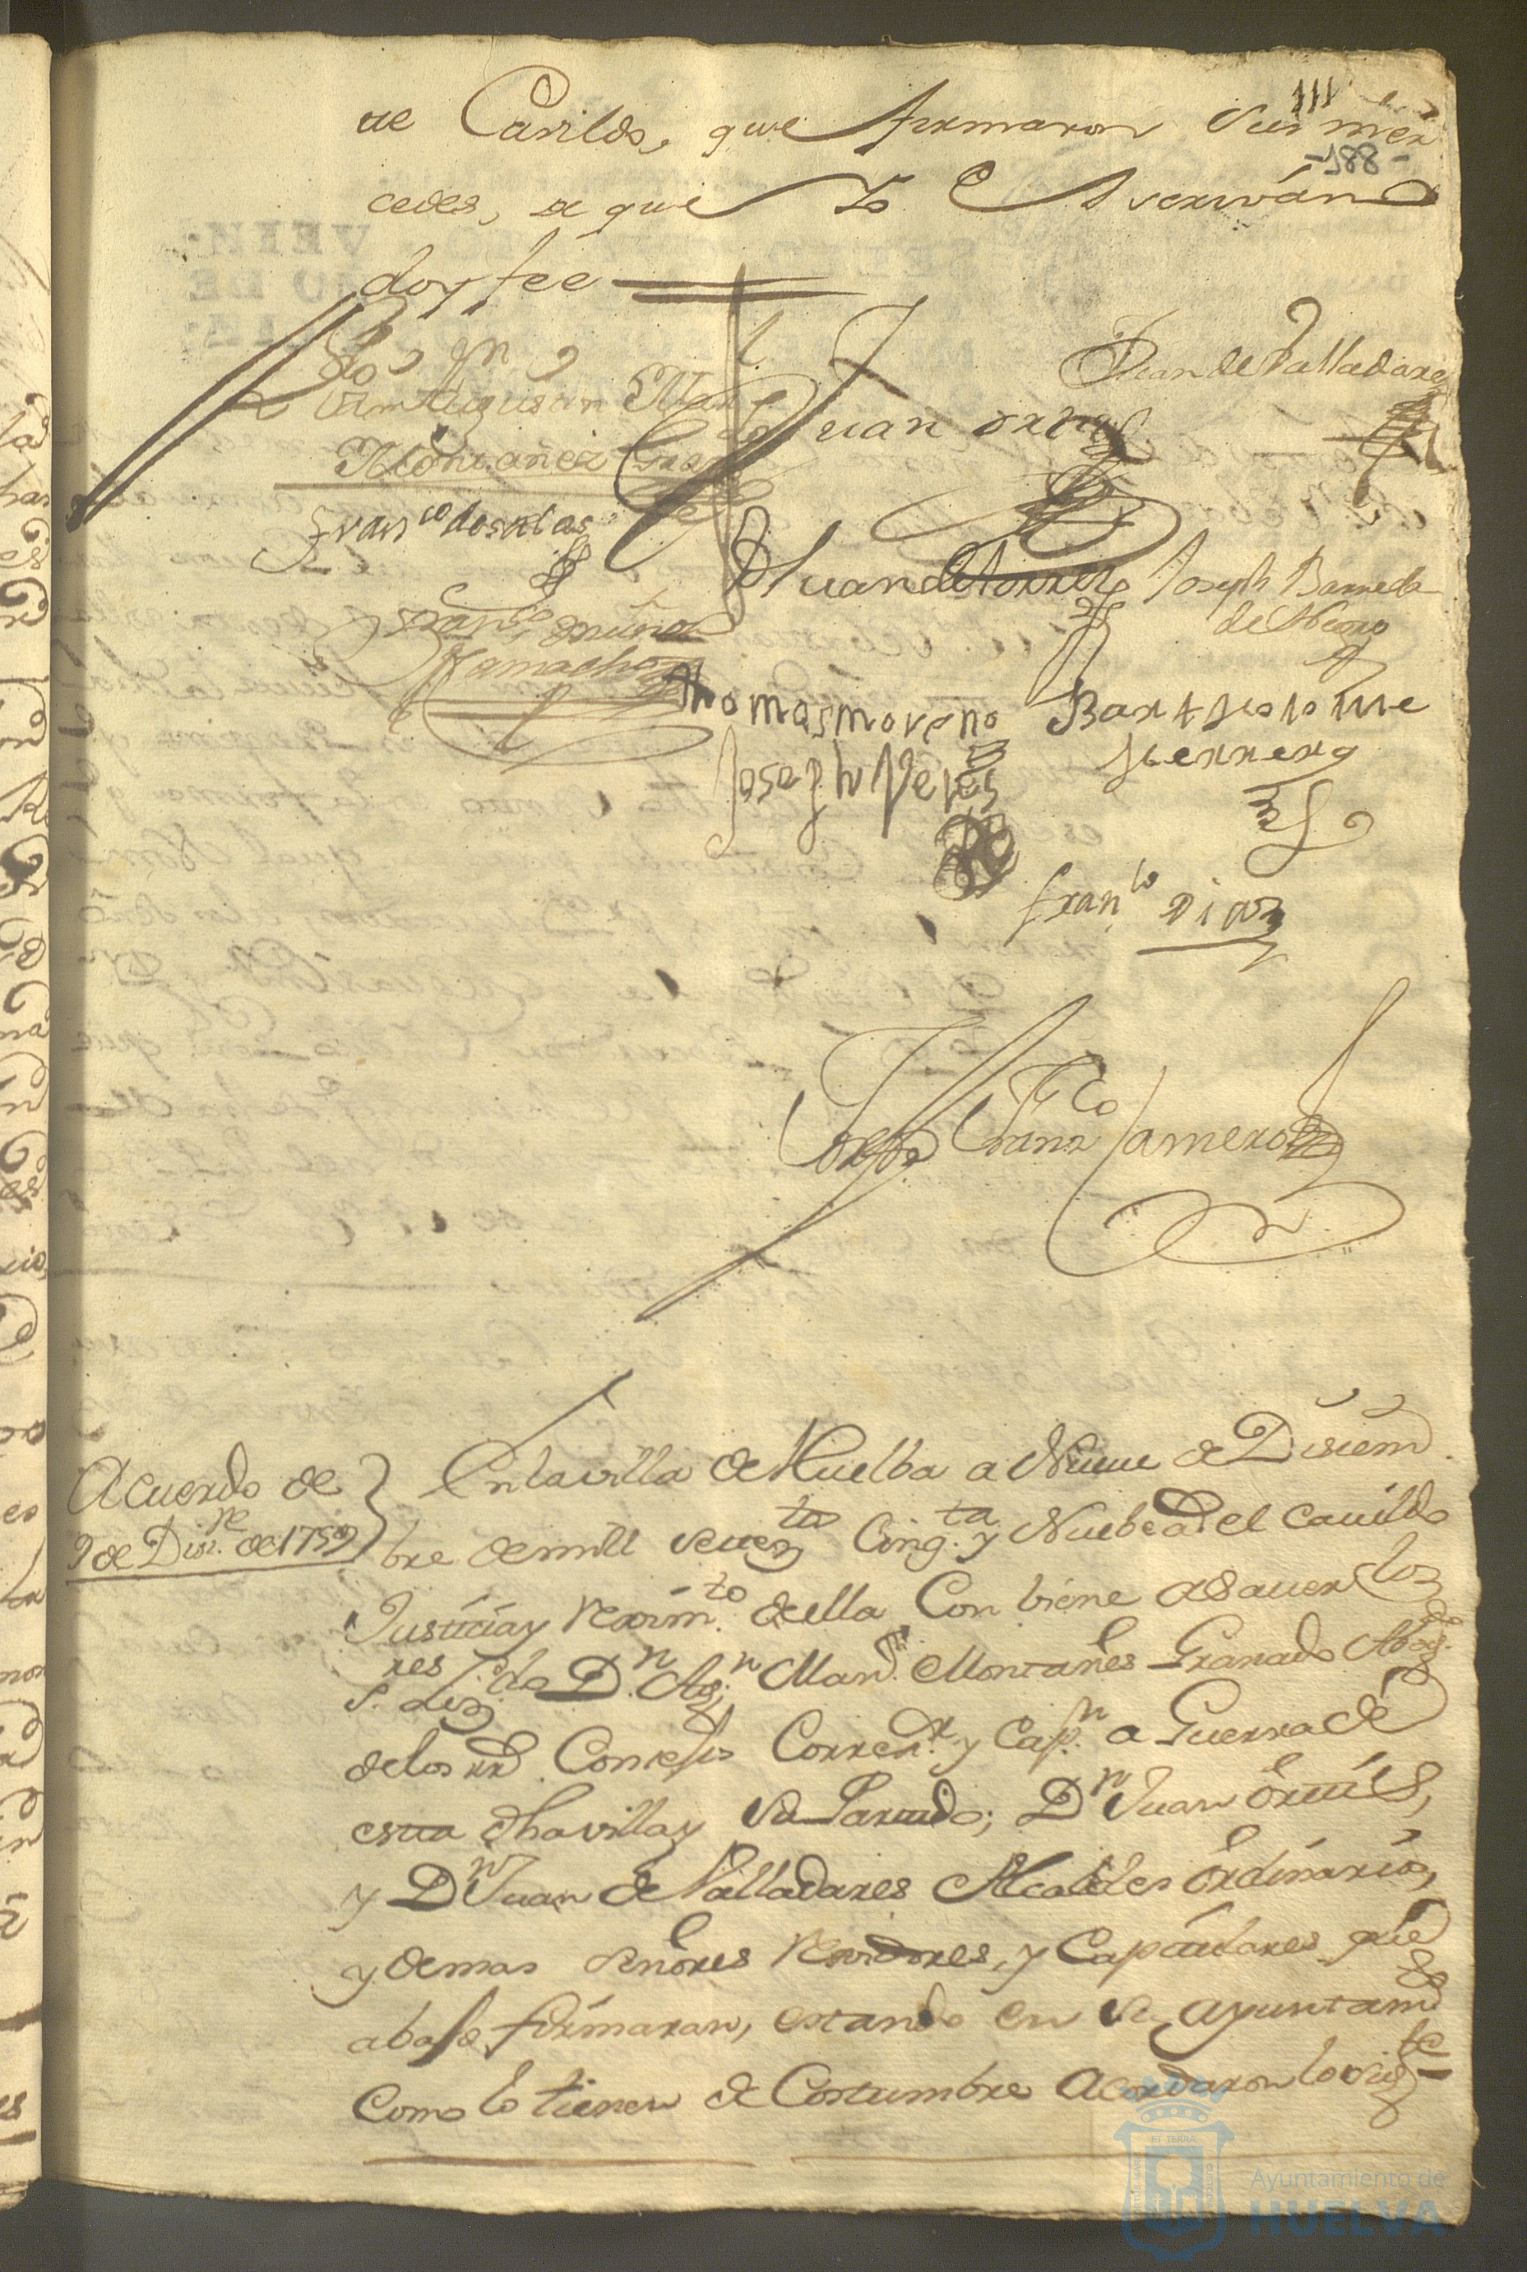 111
de Cavildo, que firmaron sus mer
-188-
cedes, de que Yo el Escrivano
doy fee
Lizdo Dn Agustin Manl
Montañez Granado
Juan de Valladares
Juan Ortiz
Franco
Juan de Torres
Joseph Barreda
de
Franco Muñoz
Camacho
Thomas moreno
Barttholome
Herrera
Joseph Veles
franco Diaz
Joseph Franco Camero
Acuerdo de
9 de Dizre de 1759
En la villa de Huelba a Nueve de Diziem
bre de mill setezto Cinqta y Nuebe a el Cavildo
Justicia y Reximto de ella Conbiene a saver los
Sres Lizdo Dn Agn Manl Montañes Granado Abogdo
de los Rs Consejos Correxr y Capn a Guerra de
esta dha villa y su Partido; Dn Juan Ortiz,
y Dn Juan de Valladares Alcaldes Ordinarios,
y demas Señores Rexidores, y Capitulares que
abajo firmaran, estando en su ayuntamto
Como lo tienen de Costumbre acordaron lo sigte
ET TERRA
Ayuntamiento de
HUELVA